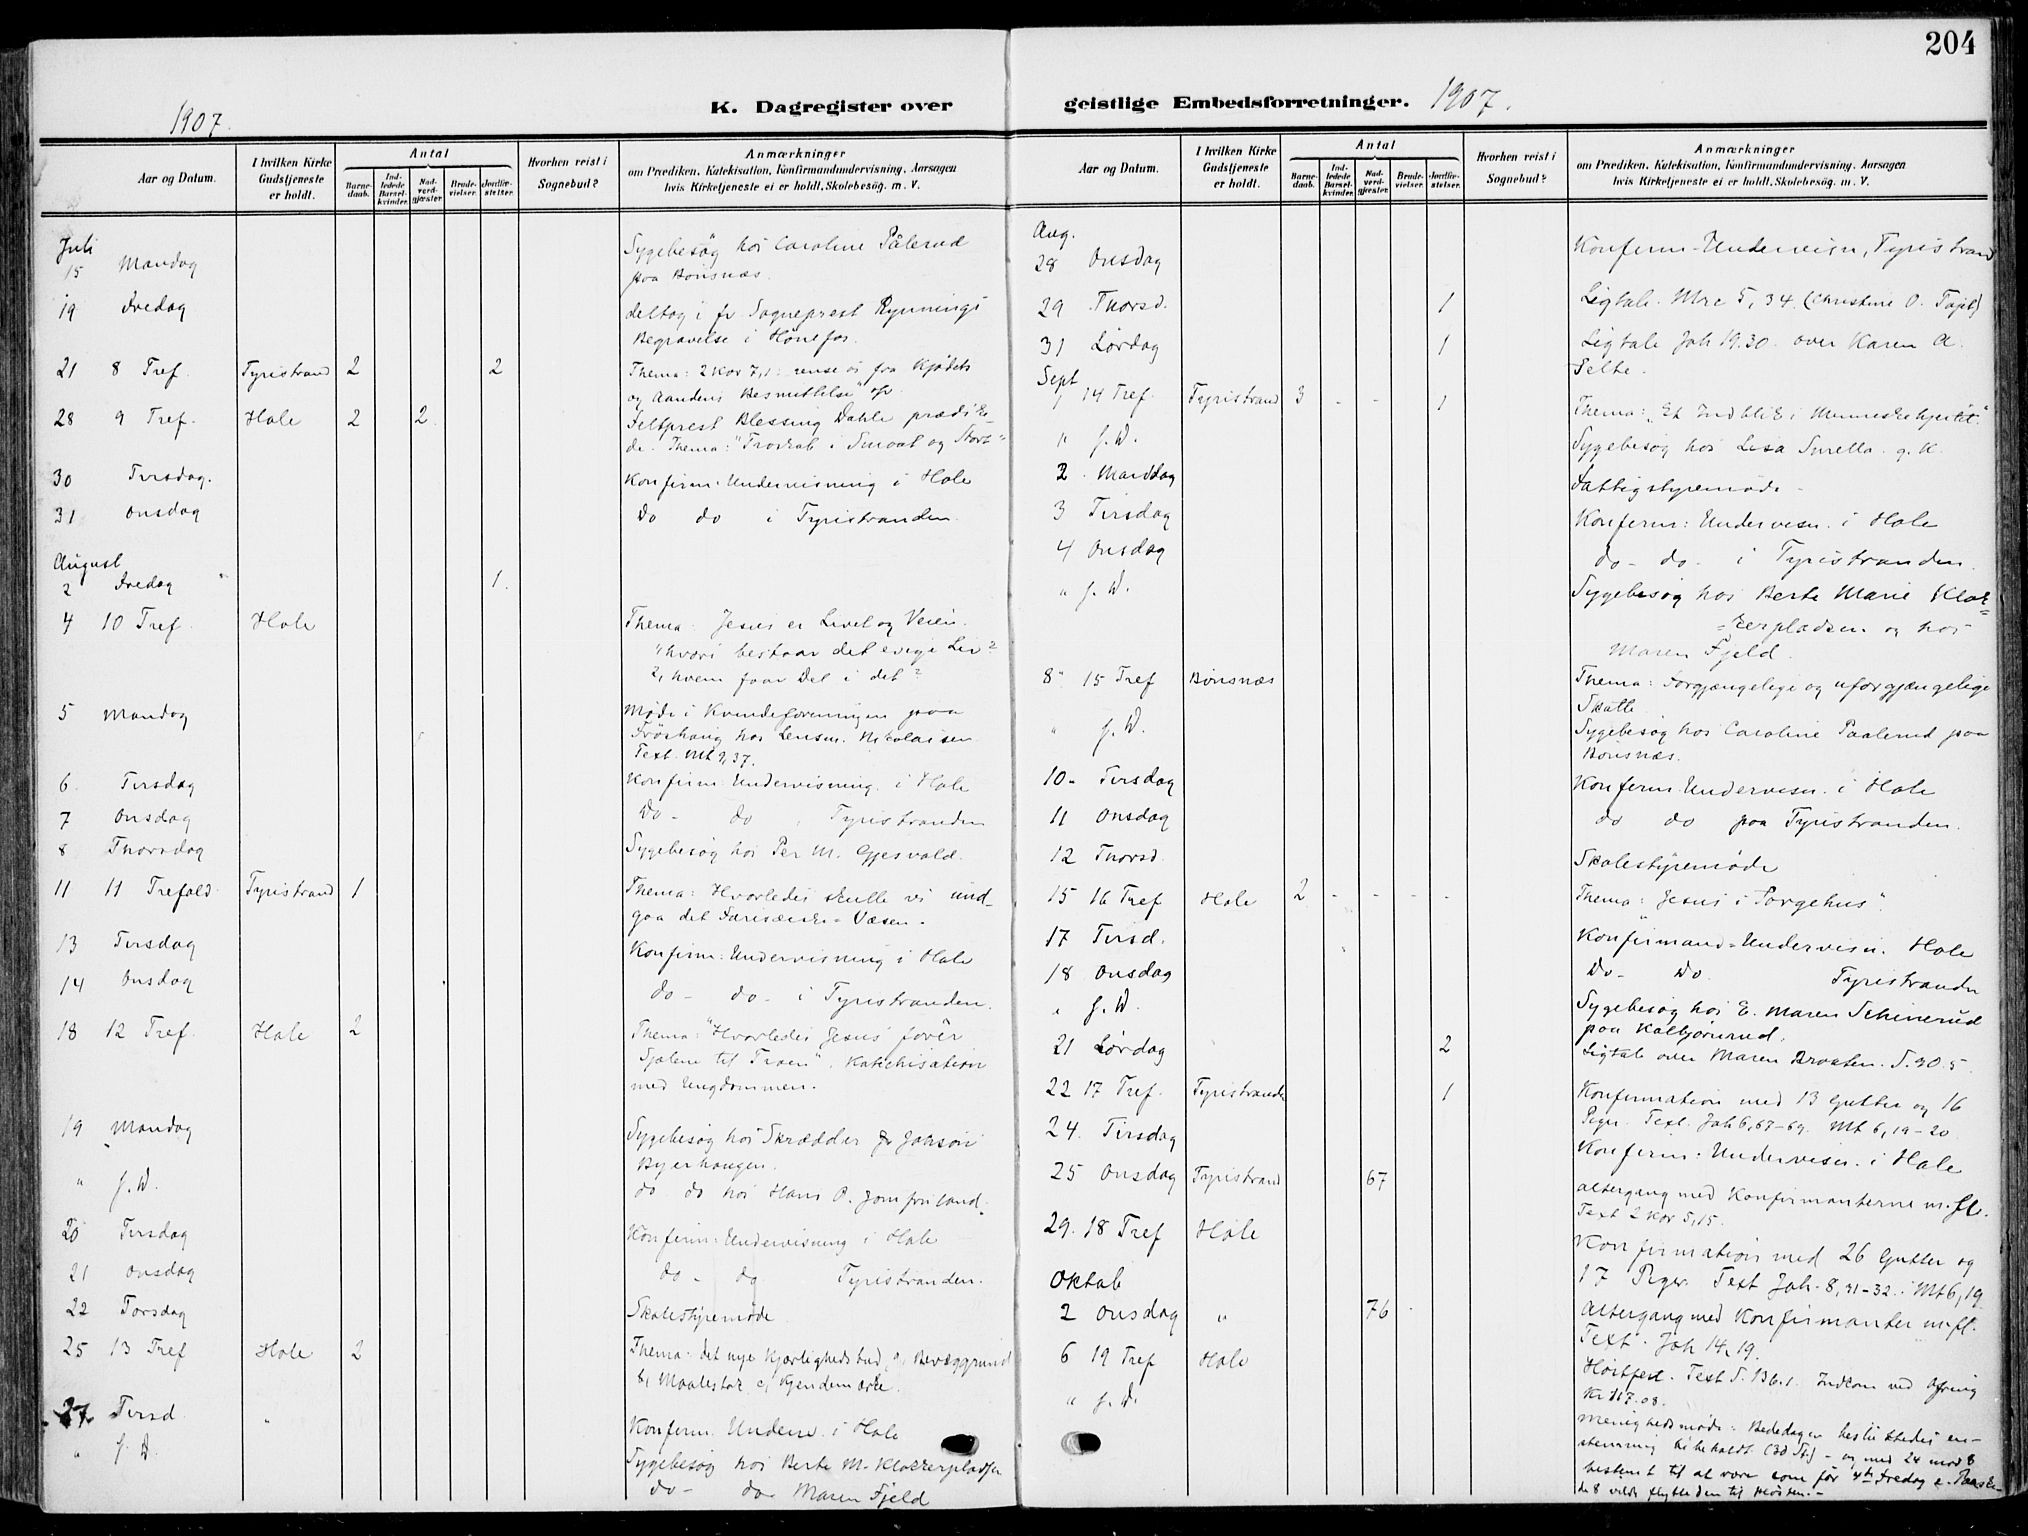 204
K. Dagregister over
geistlige Embedsforretninger.
1907.
1907.
Aar og Datum.
I hvilken Kirke Gudstjeneste er holdt.
Antal
Barne-daab.
Ind-ledede Barsel-kvinder.
Nad-verd-gjæster.
Brude-vielser.
Jordfæ-stelser.
Hvorhen reist i Sognebud?
Anmærkninger
om Prædiken, Katekisation, Konfirmandundervisning, Aarsagen
hvis Kirketjeneste ei er holdt, Skolebesøg, m. V.
Juli
15 Mandag Sygebesøg hos Caroline Pålerud
paa Bønsnæs.
19 Fredag deltog i fv Sogneprest Rynnings
Begravelse i Hønefos.
21 8 Tref. Tyristrand 2 2 Thema: 2 Kor 7,1: rense os fra Kjødets
og Aandens Besmittelse"
28 9 Tref. Hole 2 2 Feltprest Blessing Dahle prædike-
de. Thema: "Troskab i Smaat og Stort"
30 Tirsdag. Konfirm: Undervisning i Hole
31 Onsdag Do do i Tyristranden.
August
2 Fredag " 1.
4 10 Tref. Hole Thema: Jesus er Livet og Veien.
"hvori bestaar det evige Liv?
2, hvem faar Del i det?
5 Mandag Møde i Kvindeforeningen paa
Frøshaug hos Lensm. Nikolaisen
Text. Mt 9,37.
6. Tirsdag Konfirm: Undervisning. i Hole
7 Onsdag Do - do Tyristranden
8 Thorsdag Sygebesøg hos Per M. Gjesvold.
11 11 Trefold. Tyristrand 1 Thema: Hvorledes skulle vi und-
gaa det Farisæiske Væsen.
13 Tirsdag Konfirm: Undervisning i Hole
14 Onsdag do - do - i Tyristranden.
18 12 Tref. Hole 2 Thema: "Hvorledes Jesus fører
Sjælene til Troen". Katechisation
med Ungdommen.
19 Mandag Sygebesøg hos Skrædder Johsøn
Byerhaugen.
" s. D. do do hos Hans O. Jomfruland.
20 Tirsdag Konfirm: Undervisning i Hole
21 Onsdag do - do Tyristranden.
22 Torsdag Skolestyremøde.
25 13 Tref Hole 2 Thema: det nye Kjærlighedsbud, a, Bevæggrund
b, Maalestok c, Kjendemærke.
27 Tirsd. " Konfirm. Underv. i Hole
" s. D. Sygebesøg hos Berte M. Klokkerpladsen
do - do Maren Fjeld
Aar og Datum.
I hvilken Kirke Gudstjeneste er holdt.
Antal
Barne-daab.
Ind-ledede Barsel-kvinder.
Nad-verd-gjæster.
Brude-vielser.
Jordfæ-stelser.
Hvorhen reist i Sognebud?
Anmærkninger
om Prædiken, Katekisation, Konfirmandundervisning, Aarsagen
hvis Kirketjeneste ei er holdt, Skolebesøg. m. V.
Aug.
28 Onsdag Konfirm-Undervisn, Tyristrand
29 Thorsd. 1 Ligtale. Mrc 5, 34. (Christine O.
31 Lørdag 1 Ligtale Joh 19.30. over Karen A.
Selte.
Sept
1 14 Tref. Tyristrand 3 - - 1 Thema: "Et Indblik i Menneskehjertet."
" s. D. Sygebesøg hos Lisa Svrella. g. K.
2. Manddag Fattigstyremøde -
3 Tirsdag Konfirm: Undervisn. i Hole
4 Onsdag do - do - i Tyristranden.
" s. D. Sygebesøg hos Berte Marie Klok-
kerpladsen og hos
Maren Fjeld.
8" 15 Tref Bønsnæs Thema: Forgjængelige og uforgjængelige
Skatte
" s. D. Sygebesøg hos Caroline Paalerud paa
Bønsnæs.
10- Tirsdag Konfirm. Undervisn. i Hole
11 Onsdag do do paa Tyristranden.
12 Thorsd. Skolestyremøde
15 16 Tref Hole 2 - - - - Thema: "Jesus i Sorgehus".
17 Tirsd. Konfirmand-Undervisn. Hole
18 Onsdag Do - Do Tyristranden
" s. D. Sygebesøg hos E. Maren Schinerud
paa Kolbjørnrud.
21 Lørdag 2 Ligtale over Maren Braaten. S. 90.5.
22 17 Tref. Tyristranden 1 Konfirmation med 13 Gutter og 16
Piger. Text. Joh 6,67-69. Mt 6,19-20
24. Tirsdag Konfirm: Undervisn. i Hole
25 Onsdag Tyristrand 67 Altergang med Konfirmanterne m. fl.
Text 2 Kor 5,15.
29. 18 Tref Hole Konfirmation med 26 Gutter og
17 Piger. Text Joh. 8,31-32. Mt 6,19.
Oktob
2 Onsdag " 76 Altergang med Konfirmanter m. fl.
Text. Joh 14,19.
6 19 Tref Hole Høstfest. Text S. 136.1. Indkom ved Ofring
Kr 117.03.
" s. D. Menighedsmøde: Bededagen besluttedes en-
stemmig bibeholdt (32 St) - og med 24 mod 8
bestemt til at være som før 4de Fredag e. Paaske
de 8 vilde flytte den til Høsten. -